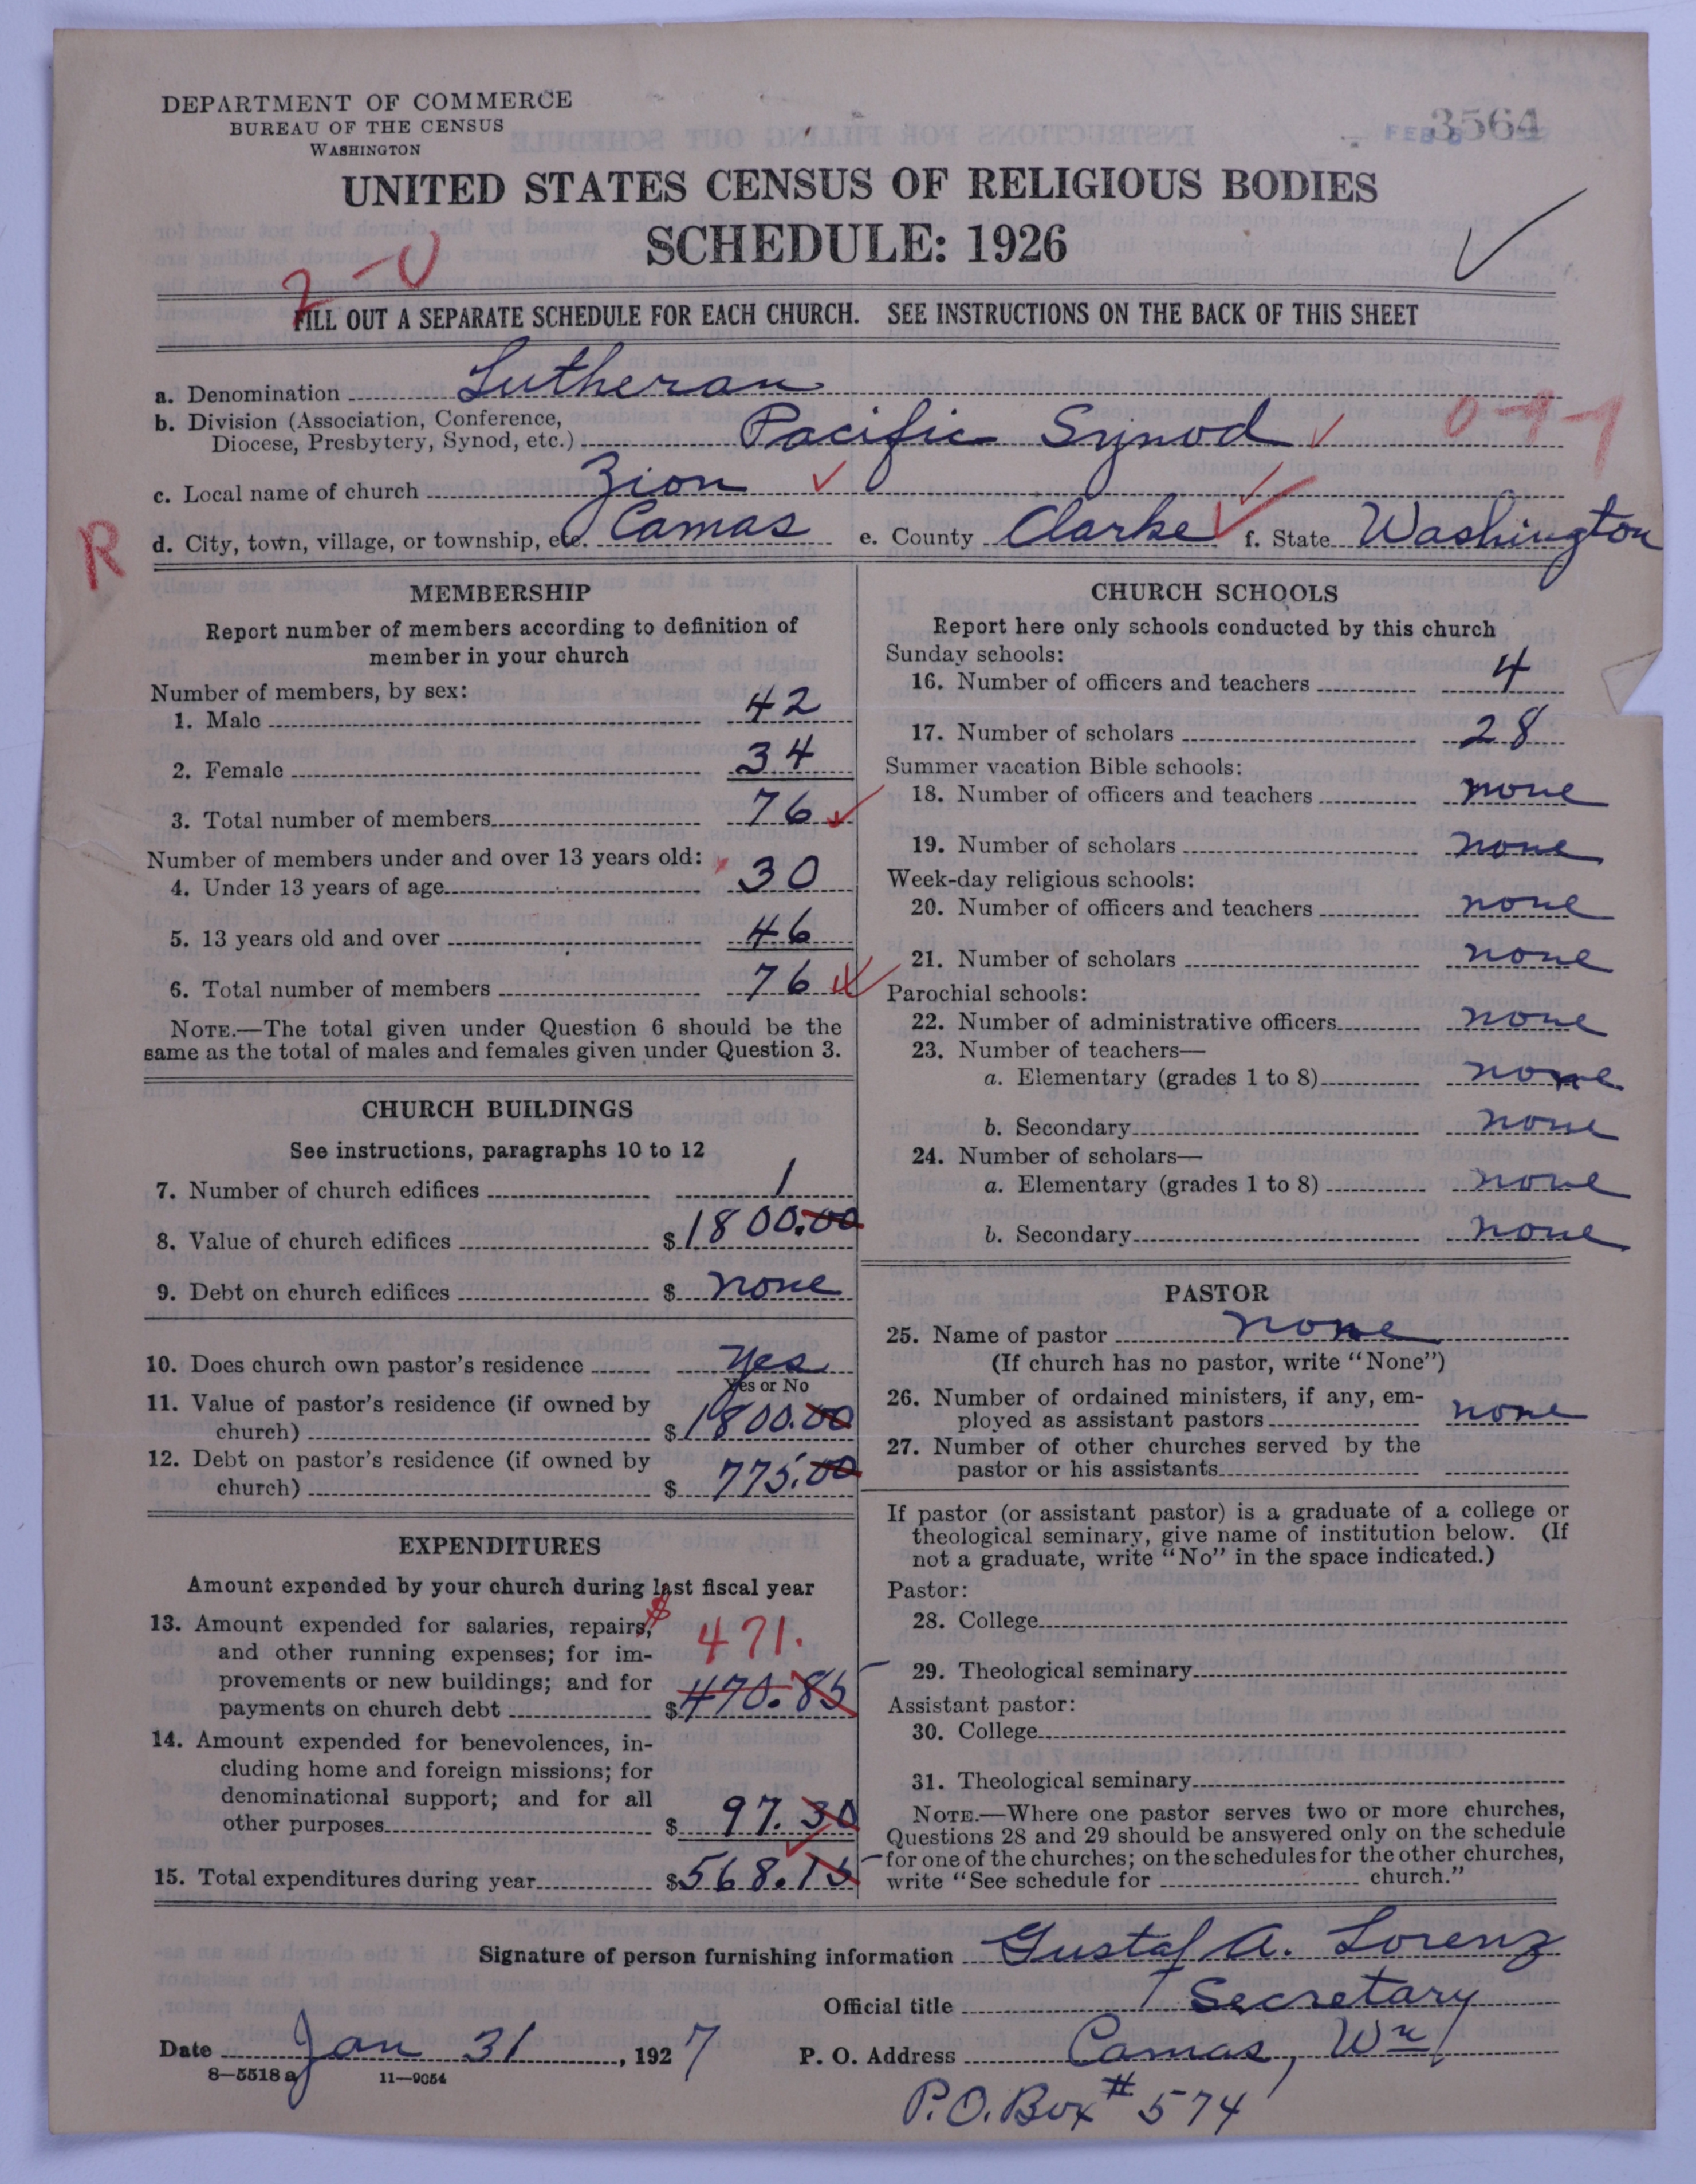 DEPARTMENT OF COMMERCE
BUREAU OF THE CENSUS
WASHINGTON
3564
FEB 8
UNITED STATES CENSUS OF RELIGIOUS BODIES
SCHEDULE: 1926
FILL OUT A SEPARATE SCHEDULE FOR EACH CHURCH. SEE INSTRUCTIONS ON THE BACK OF THIS SHEET
a. Denomination Lutheran
b. Division (Association, Conference,
Diocese, Presbytery, Synod, etc.) Pacific Synod
c. Local name of church Zion
R
d. City, town, village, or township, etc. Camas e. County Clarke f. State Washington
MEMBERSHIP
Report number of members according to definition of
member in your church
Number of members, by sex:
1. Male 42
2. Female 34
3. Total number of members 76
Number of members under and over 13 years old:
4. Under 13 years of age 30
5. 13 years old and over 46
6. Total number of members 76
NOTE.—The total given under Question 6 should be the
same as the total of males and females given under Question 3.
CHURCH BUILDINGS
See instructions, paragraphs 10 to 12
7. Number of church edifices 1
8. Value of church edifices $1800.00
9. Debt on church edifices $ none
10. Does church own pastor's residence Yes
Yes or No
11. Value of pastor's residence (if owned by
church) $1800.00
12. Debt on pastor's residence (if owned by
church) $ 775.00
EXPENDITURES
Amount expended by your church during last fiscal year
13. Amount expended for salaries, repairs, $
and other running expenses; for im- 471.
provements or new buildings; and for
payments on church debt $470.85
14. Amount expended for benevolences, in-
cluding home and foreign missions; for
denominational support; and for all
other purposes $ 97.30
15. Total expenditures during year $568.15
CHURCH SCHOOLS
Report here only schools conducted by this church
Sunday schools:
16. Number of officers and teachers 4
17. Number of scholars 28
Summer vacation Bible schools:
18. Number of officers and teachers none
19. Number of scholars none
Week-day religious schools:
20. Number of officers and teachers none
21. Number of scholars none
Parochial schools:
22. Number of administrative officers none
23. Number of teachers—
a. Elementary (grades 1 to 8) none
b. Secondary none
24. Number of scholars—
a. Elementary (grades 1 to 8) none
b. Secondary none
PASTOR
25. Name of pastor none
(If church has no pastor, write "None")
26. Number of ordained ministers, if any, em-
ployed as assistant pastors none
27. Number of other churches served by the
pastor or his assistants
If pastor (or assistant pastor) is a graduate of a college or
theological seminary, give name of institution below. (If
not a graduate, write "No" in the space indicated.)
Pastor:
28. College
29. Theological seminary
Assistant pastor:
30. College
31. Theological seminary
NOTE.—Where one pastor serves two or more churches,
Questions 28 and 29 should be answered only on the schedule
for one of the churches; on the schedules for the other churches,
write "See schedule for church."
Signature of person furnishing information Gustaf A. Lorenz
Official title Secretary
Date Jan 31, 1927 P. O. Address Camas, Wn
8—5518a 11—9054
P.O. Box # 574